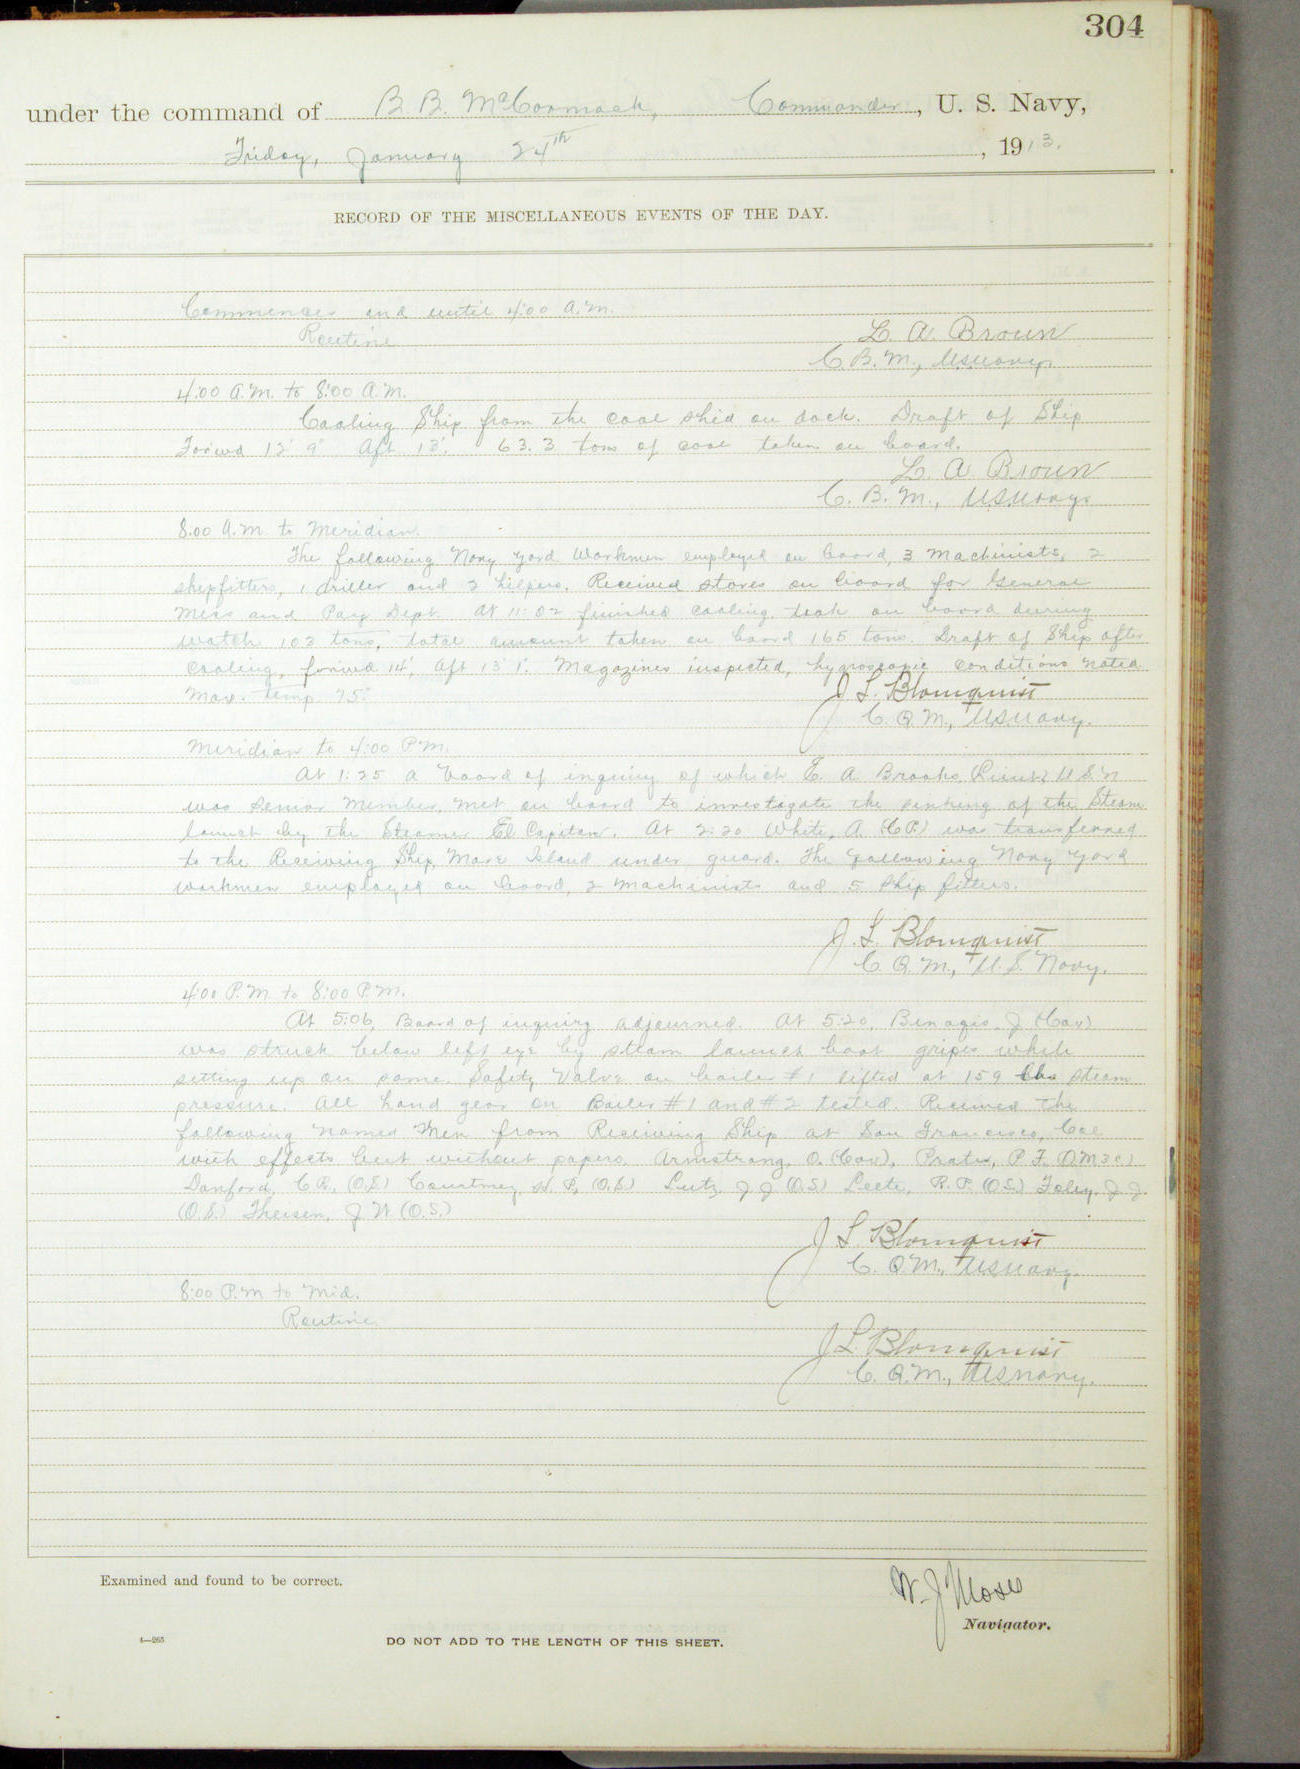 304
under the command of B. B. McCormack, Commander, U. S. Navy,
Friday, January 24th, 1913.
RECORD OF THE MISCELLANEOUS EVENTS OF THE DAY.
Commences and until 4:00 A.M.
Routine
L. A. Broun
C. B. M., U.S. Navy.
4:00 A.M. to 8:00 A.M.
Coaling Ship from the coal shed on dock. Draft of Ship
For'wd 12' 9" Aft 13'. 63.3 tons of coal taken on board.
L. A Broun
C. B. M., U.S. Navy.
8.00 A.M. to Meridian.
The following Navy Yard Workmen employed on board, 3 Machinists, 2
shipfitters, 1 driller and 2 helpers. Received stores on board for General
Mess and Pay Dept. At 11:02 finished coaling, took on board during
watch 102 tons, total amount taken on board 165 tons. Draft of Ship after
coaling, forwd 14', Aft 13' 1". Magazines inspected, hygroscopic conditions noted
Max. temp 75°
J L. Blomquist
C. Q. M., U.S. Navy.
Meridian to 4:00 P.M.
At 1:25 a board of inquiry of which E. A. Brooks, Lieut. U.S.N
was Senior Member, met on board to investigate the sinking of the Steam
launch by the Steamer El Capitan. At 2:20 White, A. (CP.) was transferred
to the Receiving Ship, Mare Island under guard. The following Navy Yard
workmen employed on board, 2 Machinists and 5 Ship fitters.
J. L. Blomquist
C. Q. M., U. S. Navy.
4:00 P.M. to 8:00 P.M.
At 5:06, Board of inquiry adjourned. At 5:20, J (Cox)
was struck below left eye by steam launch boat gripes while
setting up on same. Safety Valve on boiler #1 lifted at 159 lbs steam
pressure. All hand gear on Boiler #1 and #2 tested. Received the
following named Men from Receiving Ship at San Francisco, Cal
with effects but without papers. Armstrong, O. (Cox), P. F. (Q.M 3c)
Danford, C R. (O.S.) Courtney, H. P. (O.S.) Lutz, J J (O.S.) Leete, R. P. (O.S.) Foley, J. J.
(O.S.) Theisen, J W (O.S.)
J L Blomquist
C. Q.M., U.S. Navy.
8:00 P.M to Mid.
Routine.
J L. Blomquist
C. Q.M., U.S. Navy.
Examined and found to be correct.
W. J Moses
Navigator.
4—265
DO NOT ADD TO THE LENGTH OF THIS SHEET.